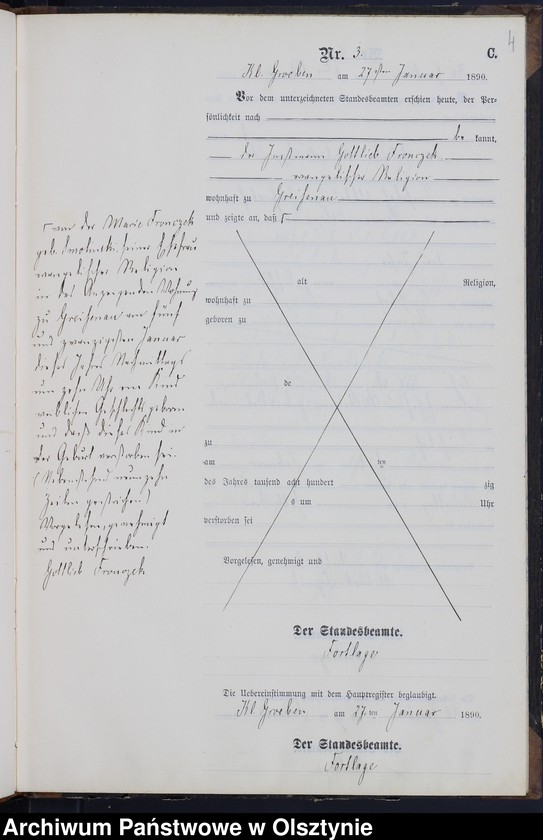 4
Nr. 3. C.
Kl. Groeben am 27ten Januar 1890.
Vor dem unterzeichneten Standesbeamten erschien heute, der Per-
sönlichkeit nach
be kannt,
der Instmann Gottlieb Fronczek
evangelischer Religion
wohnhaft zu Greisenau
und zeigte an, daß Γ
Γ von der Marie Fronczek
geb. Smolinski seiner Ehefrau
evangelischer Religion
in des Anzeigenden Wohnung
zu Greisenau am fünf
und zwanzigsten Januar
dieses Jahres Nachmittags
um zehn Uhr ein Kind
weiblichen Geschlechts geboren
und daß dieses Kind in
der Geburt verstorben sei.
(Nebenstehend neunzehn
Zeilen gestrichen)
Vorgelesen, genehmigt
und unterschrieben.
Gottlieb Fronczek
alt Religion,
wohnhaft zu
geboren zu
de
zu
am ten
des Jahres tausend acht hundert zig
s um Uhr
verstorben sei
Vorgelesen, genehmigt und
Der Standesbeamte.
Fortlage
Die Uebereinstimmung mit dem Hauptregister beglaubigt.
Kl. Groeben am 27ten Januar 1890.
Der Standesbeamte.
Fortlage
Archiwum Państwowe w Olsztynie